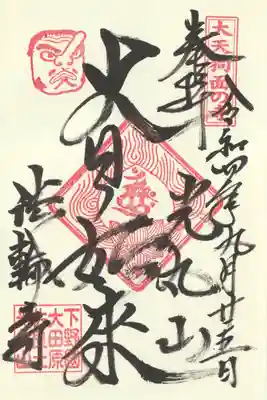 大天狗面の寺
奉拝
令和四年九月廿五日
光丸山
大日如来
法輪寺
下野国
大田原